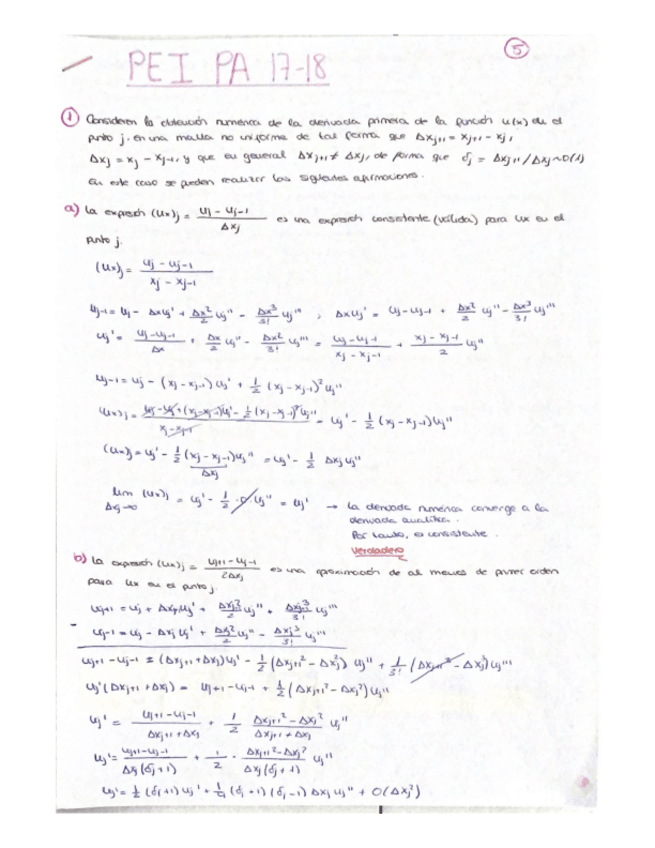 5
PEI PA 17-18
1 Consideren la obtención numérica de la derivada primera de la función u(x) en el
punto j, en una malla no uniforme de tal forma que Δxj+1 = xj+1 - xj,
Δxj = xj - xj-1, y que en general Δxj+1 ≠ Δxj, de forma que δj = Δxj+1/Δxj ~ O(1)
En este caso se pueden realizar las siguientes afirmaciones.
a) La expresión (ux)j = (uj - uj-1)/Δxj es una expresión consistente (válida) para ux en el
punto j.
(ux)j = (uj - uj-1)/(xj - xj-1)
uj-1 = uj - Δx uj' + Δx²/2 uj'' - Δx³/3! uj''' ; Δx uj' = uj - uj-1 + Δx²/2 uj'' - Δx³/3! uj'''
uj' = (uj - uj-1)/Δx + Δx/2 uj'' - Δx²/3! uj''' = (uj - uj-1)/(xj - xj-1) + (xj - xj-1)/2 uj''
uj-1 = uj - (xj - xj-1) uj' + 1/2 (xj - xj-1)² uj''
(ux)j = (uj - uj + (xj - xj-1)uj' - 1/2 (xj - xj-1)² uj'')/(xj - xj-1) = uj' - 1/2 (xj - xj-1) uj''
(ux)j = uj' - 1/2 (xj - xj-1) uj'' = uj' - 1/2 Δxj uj''
Δxj
lim Δxj→0 (ux)j = uj' - 1/2 · 0 uj'' = uj' → la derivada numérica converge a la
derivada analítica.
Por tanto, es consistente.
Verdadero
b) La expresión (ux)j = (uj+1 - uj-1)/2Δxj es una aproximación de al menos de primer orden
para ux en el punto j.
uj+1 = uj + Δxj+1 uj' + Δxj+1²/2 uj'' + Δxj+1³/3! uj'''
- uj-1 = uj - Δxj uj' + Δxj²/2 uj'' - Δxj³/3! uj'''
uj+1 - uj-1 = (Δxj+1 + Δxj) uj' - 1/2 (Δxj+1² - Δxj²) uj'' + 1/3! (Δxj+1³ - Δxj³) uj'''
uj' (Δxj+1 + Δxj) = uj+1 - uj-1 + 1/2 (Δxj+1² - Δxj²) uj''
uj' = (uj+1 - uj-1)/(Δxj+1 + Δxj) + 1/2 (Δxj+1² - Δxj²)/(Δxj+1 + Δxj) uj''
uj' = (uj+1 - uj-1)/(Δxj (δj + 1)) + 1/2 · (Δxj+1² - Δxj²)/(Δxj (δj + 1)) uj''
uj' = 1/2 (δj + 1) uj' + 1/4 (δj + 1) (δj - 1) Δxj uj'' + O(Δxj²)